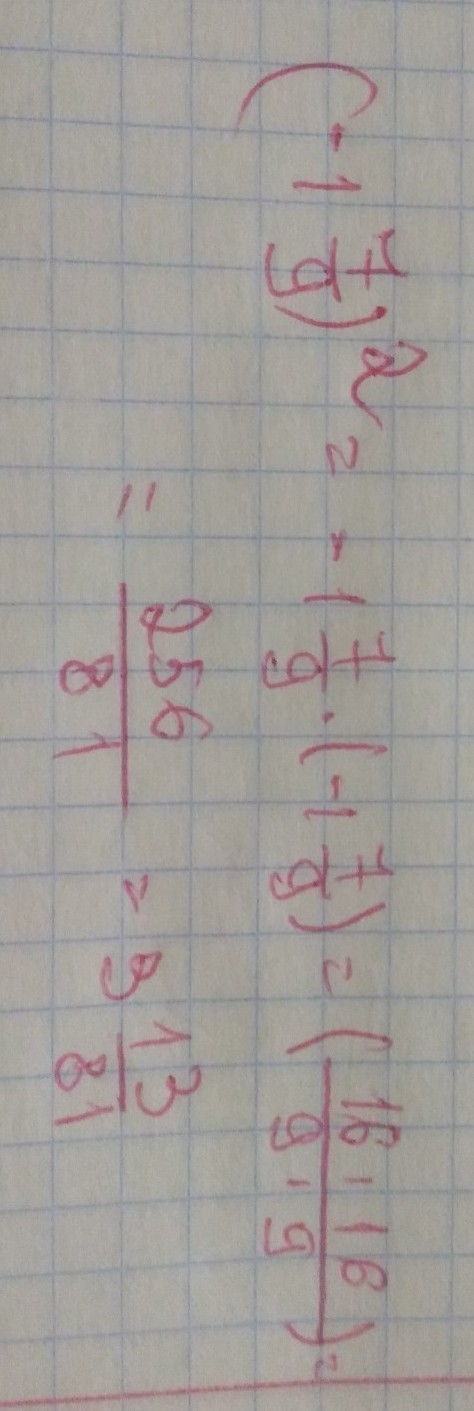 (-1 7/9)² = -1 7/9 · (-1 7/9) = (16 · 16 / 9 · 9) =
= 256/81 = 3 13/81